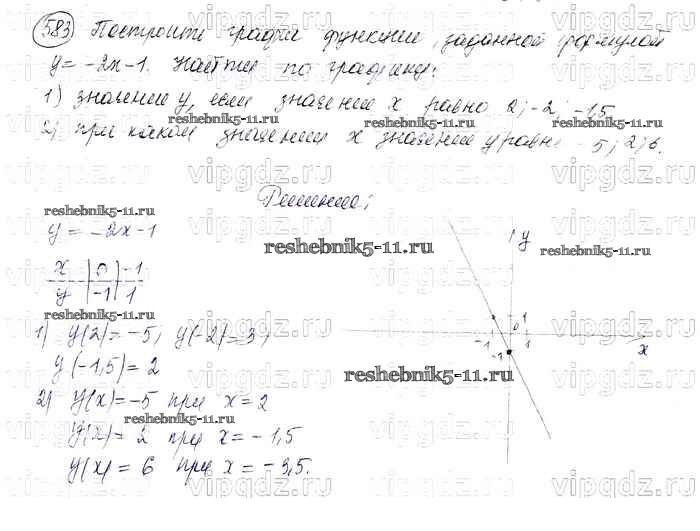 583 Построить график функции, заданной формулой
y = -2x-1. Найти по графику:
1) значение y, если значение x равно 2; -2; -1,5
2) при каком значении x значение y равно -5; 2; 6.
Решение:
y = -2x-1
x | 0 | -1
y | -1 | 1
1) y(2) = -5; y(-2) = 3;
y(-1,5) = 2
2) y(x) = -5 при x = 2
y(x) = 2 при x = -1,5
y(x) = 6 при x = -3,5.
y
1
0
-1 1
-1
x
reshebnik5-11.ru
vipgdz.ru